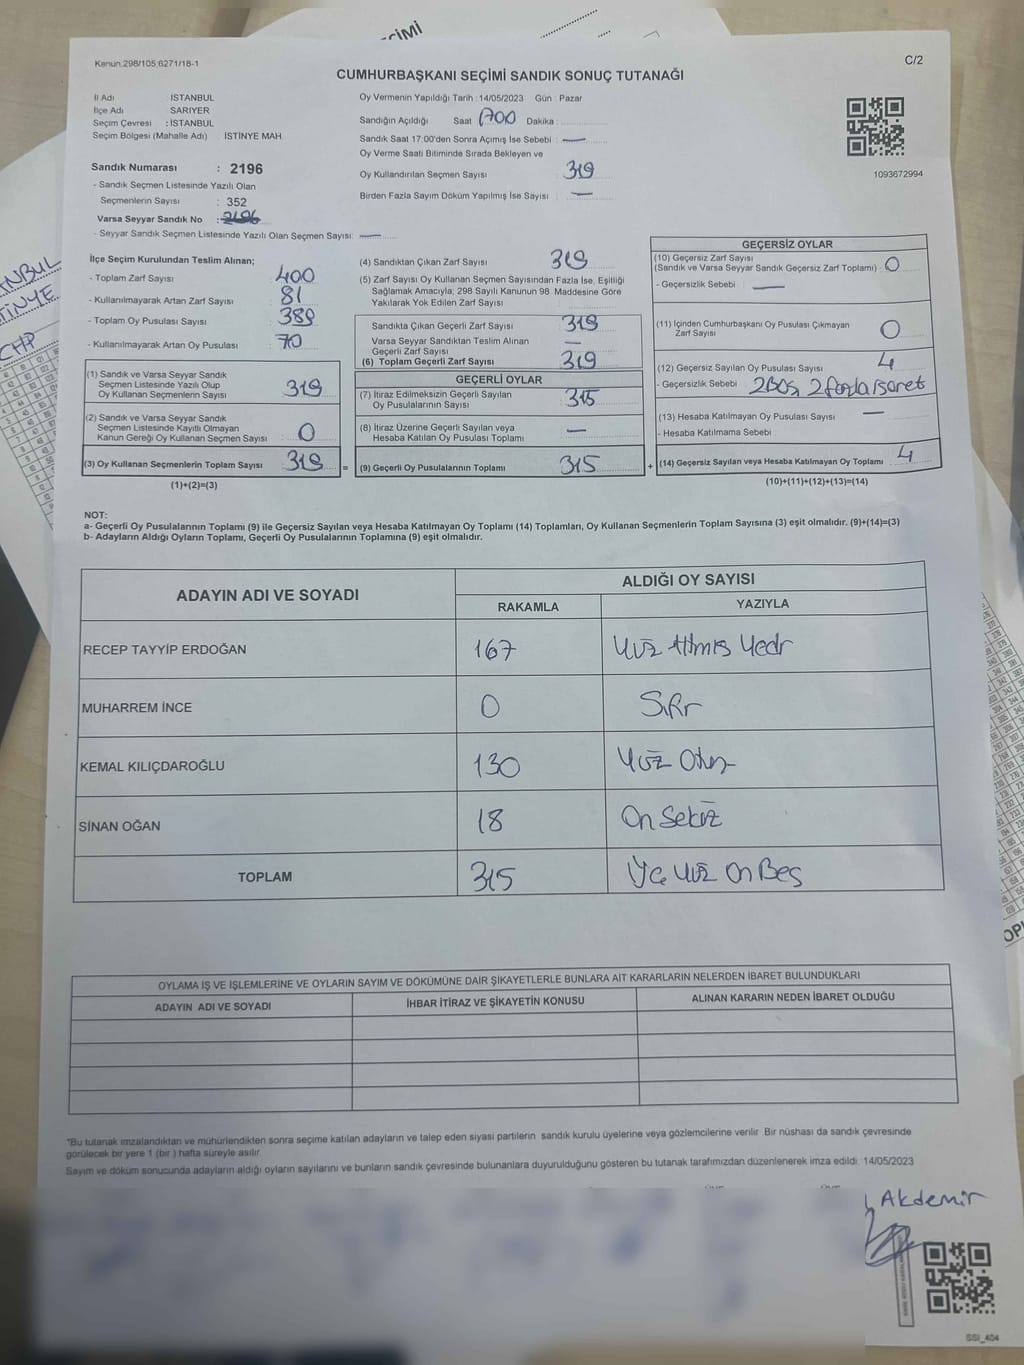 Kanun:298/105;6271/18-1
C/2
CUMHURBAŞKANI SEÇİMİ SANDIK SONUÇ TUTANAĞI
İl Adı İSTANBUL
İlçe Adı SARIYER
Seçim Çevresi : İSTANBUL
Seçim Bölgesi (Mahalle Adı) İSTİNYE MAH.
Sandık Numarası : 2196
- Sandık Seçmen Listesinde Yazılı Olan
Seçmenlerin Sayısı : 352
Varsa Seyyar Sandık No : 2196
- Seyyar Sandık Seçmen Listesinde Yazılı Olan Seçmen Sayısı: —
Oy Vermenin Yapıldığı Tarih : 14/05/2023 Gün : Pazar
Sandığın Açıldığı Saat 1700 Dakika :
Sandık Saat 17:00'den Sonra Açımış İse Sebebi : —
Oy Verme Saati Bitiminde Sırada Bekleyen ve
Oy Kullandırılan Seçmen Sayısı 319
Birden Fazla Sayım Döküm Yapılmış İse Sayısı : —
1093672994
İlçe Seçim Kurulundan Teslim Alınan;
- Toplam Zarf Sayısı : 400
- Kullanılmayarak Artan Zarf Sayısı : 81
- Toplam Oy Pusulası Sayısı : 389
- Kullanılmayarak Artan Oy Pusulası : 70
(1) Sandık ve Varsa Seyyar Sandık
Seçmen Listesinde Yazılı Olup
Oy Kullanan Seçmenlerin Sayısı 319
(2) Sandık ve Varsa Seyyar Sandık
Seçmen Listesinde Kayıtlı Olmayan
Kanun Gereği Oy Kullanan Seçmen Sayısı 0
(3) Oy Kullanan Seçmenlerin Toplam Sayısı 319
(1)+(2)=(3)
(4) Sandıktan Çıkan Zarf Sayısı 319
(5) Zarf Sayısı Oy Kullanan Seçmen Sayısından Fazla İse, Eşitliği
Sağlamak Amacıyla; 298 Sayılı Kanunun 98. Maddesine Göre
Yakılarak Yok Edilen Zarf Sayısı
Sandıkta Çıkan Geçerli Zarf Sayısı 319
Varsa Seyyar Sandıktan Teslim Alınan
Geçerli Zarf Sayısı —
(6) Toplam Geçerli Zarf Sayısı 319
GEÇERLİ OYLAR
(7) İtiraz Edilmeksizin Geçerli Sayılan
Oy Pusulalarının Sayısı 315
(8) İtiraz Üzerine Geçerli Sayılan veya
Hesaba Katılan Oy Pusulası Toplamı —
= (9) Geçerli Oy Pusulalarının Toplamı 315
GEÇERSİZ OYLAR
(10) Geçersiz Zarf Sayısı
(Sandık ve Varsa Seyyar Sandık Geçersiz Zarf Toplamı) : 0
- Geçersizlik Sebebi —
(11) İçinden Cumhurbaşkanı Oy Pusulası Çıkmayan
Zarf Sayısı 0
(12) Geçersiz Sayılan Oy Pusulası Sayısı 4
- Geçersizlik Sebebi 2 Boş, 2 fazla işaret
(13) Hesaba Katılmayan Oy Pusulası Sayısı —
- Hesaba Katılmama Sebebi
+ (14) Geçersiz Sayılan veya Hesaba Katılmayan Oy Toplamı 4
(10)+(11)+(12)+(13)=(14)
NOT:
a- Geçerli Oy Pusulalarının Toplamı (9) ile Geçersiz Sayılan veya Hesaba Katılmayan Oy Toplamı (14) Toplamları, Oy Kullanan Seçmenlerin Toplam Sayısına (3) eşit olmalıdır. (9)+(14)=(3)
b- Adayların Aldığı Oyların Toplamı, Geçerli Oy Pusulalarının Toplamına (9) eşit olmalıdır.
ADAYIN ADI VE SOYADI
ALDIĞI OY SAYISI
RAKAMLA YAZIYLA
RECEP TAYYİP ERDOĞAN 167 Yüz Altmış Yedi
MUHARREM İNCE 0 Sıfır
KEMAL KILIÇDAROĞLU 130 Yüz Otuz
SİNAN OĞAN 18 On Sekiz
TOPLAM 315 Üç Yüz On Beş
OYLAMA İŞ VE İŞLEMLERİNE VE OYLARIN SAYIM VE DÖKÜMÜNE DAİR ŞİKAYETLERLE BUNLARA AİT KARARLARIN NELERDEN İBARET BULUNDUKLARI
ADAYIN ADI VE SOYADI İHBAR İTİRAZ VE ŞİKAYETİN KONUSU ALINAN KARARIN NEDEN İBARET OLDUĞU
*Bu tutanak imzalandıktan ve mühürlendikten sonra seçime katılan adayların ve talep eden siyasi partilerin sandık kurulu üyelerine veya gözlemcilerine verilir. Bir nüshası da sandık çevresinde
görülecek bir yere 1 (bir ) hafta süreyle asılır.
Sayım ve döküm sonucunda adayların aldığı oyların sayılarını ve bunların sandık çevresinde bulunanlara duyurulduğunu gösteren bu tutanak tarafımızdan düzenlenerek imza edildi. 14/05/2023
Akdemir
SSI_404
CHP